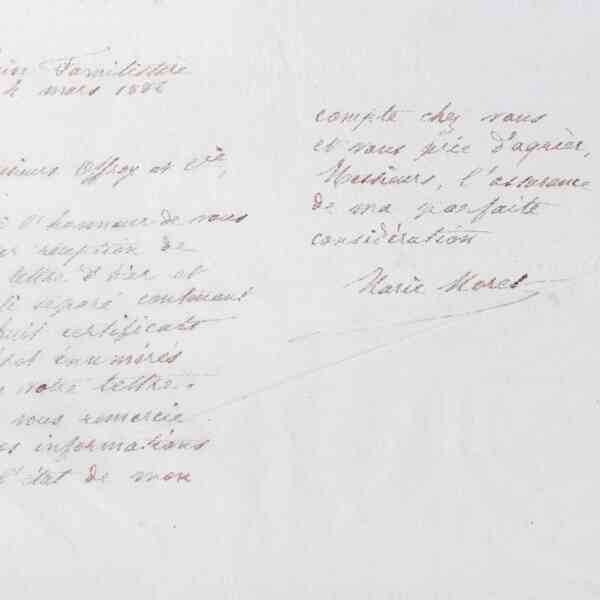 Familistère
4 mars 188
Offroy et Cie,
l'honneur de vous
réception de
lettre d'hier et
séparé contenant
huit certificats
énumérés
votre lettre.
vous remercie
informations
l'état de mon
compte chez vous
et vous prie d'agréer,
Messieurs, l'assurance
de ma parfaite
considération
Marie Moret